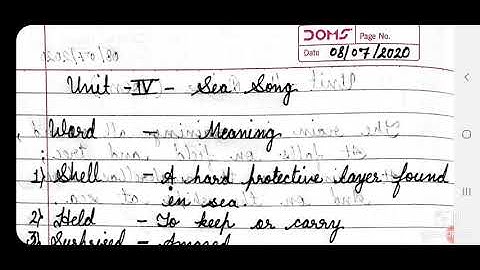 DOMS Page No.
Date 08/07/2020
Unit - IV - Sea Song
Word - Meaning
1) Shell - A hard protective layer found
in sea
2) Held - To keep or carry
3) Surprised - Amazed